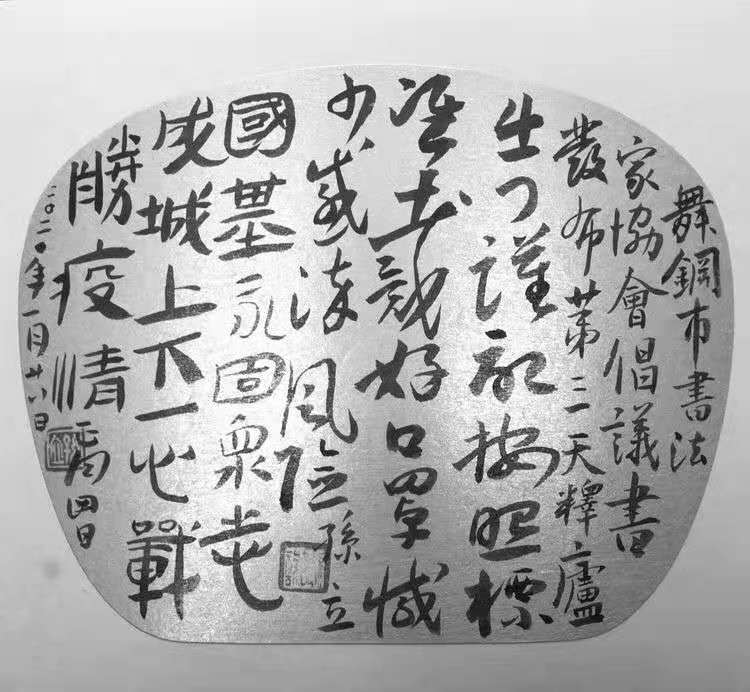 舞鋼市書法
家協會倡議書
發布第三天釋廬
出门謹記按照標
準去戴好口罩減
少感染風险孫立
國基永固衆志
成城上下一心戰
勝疫情
二〇二〇年一月廿日